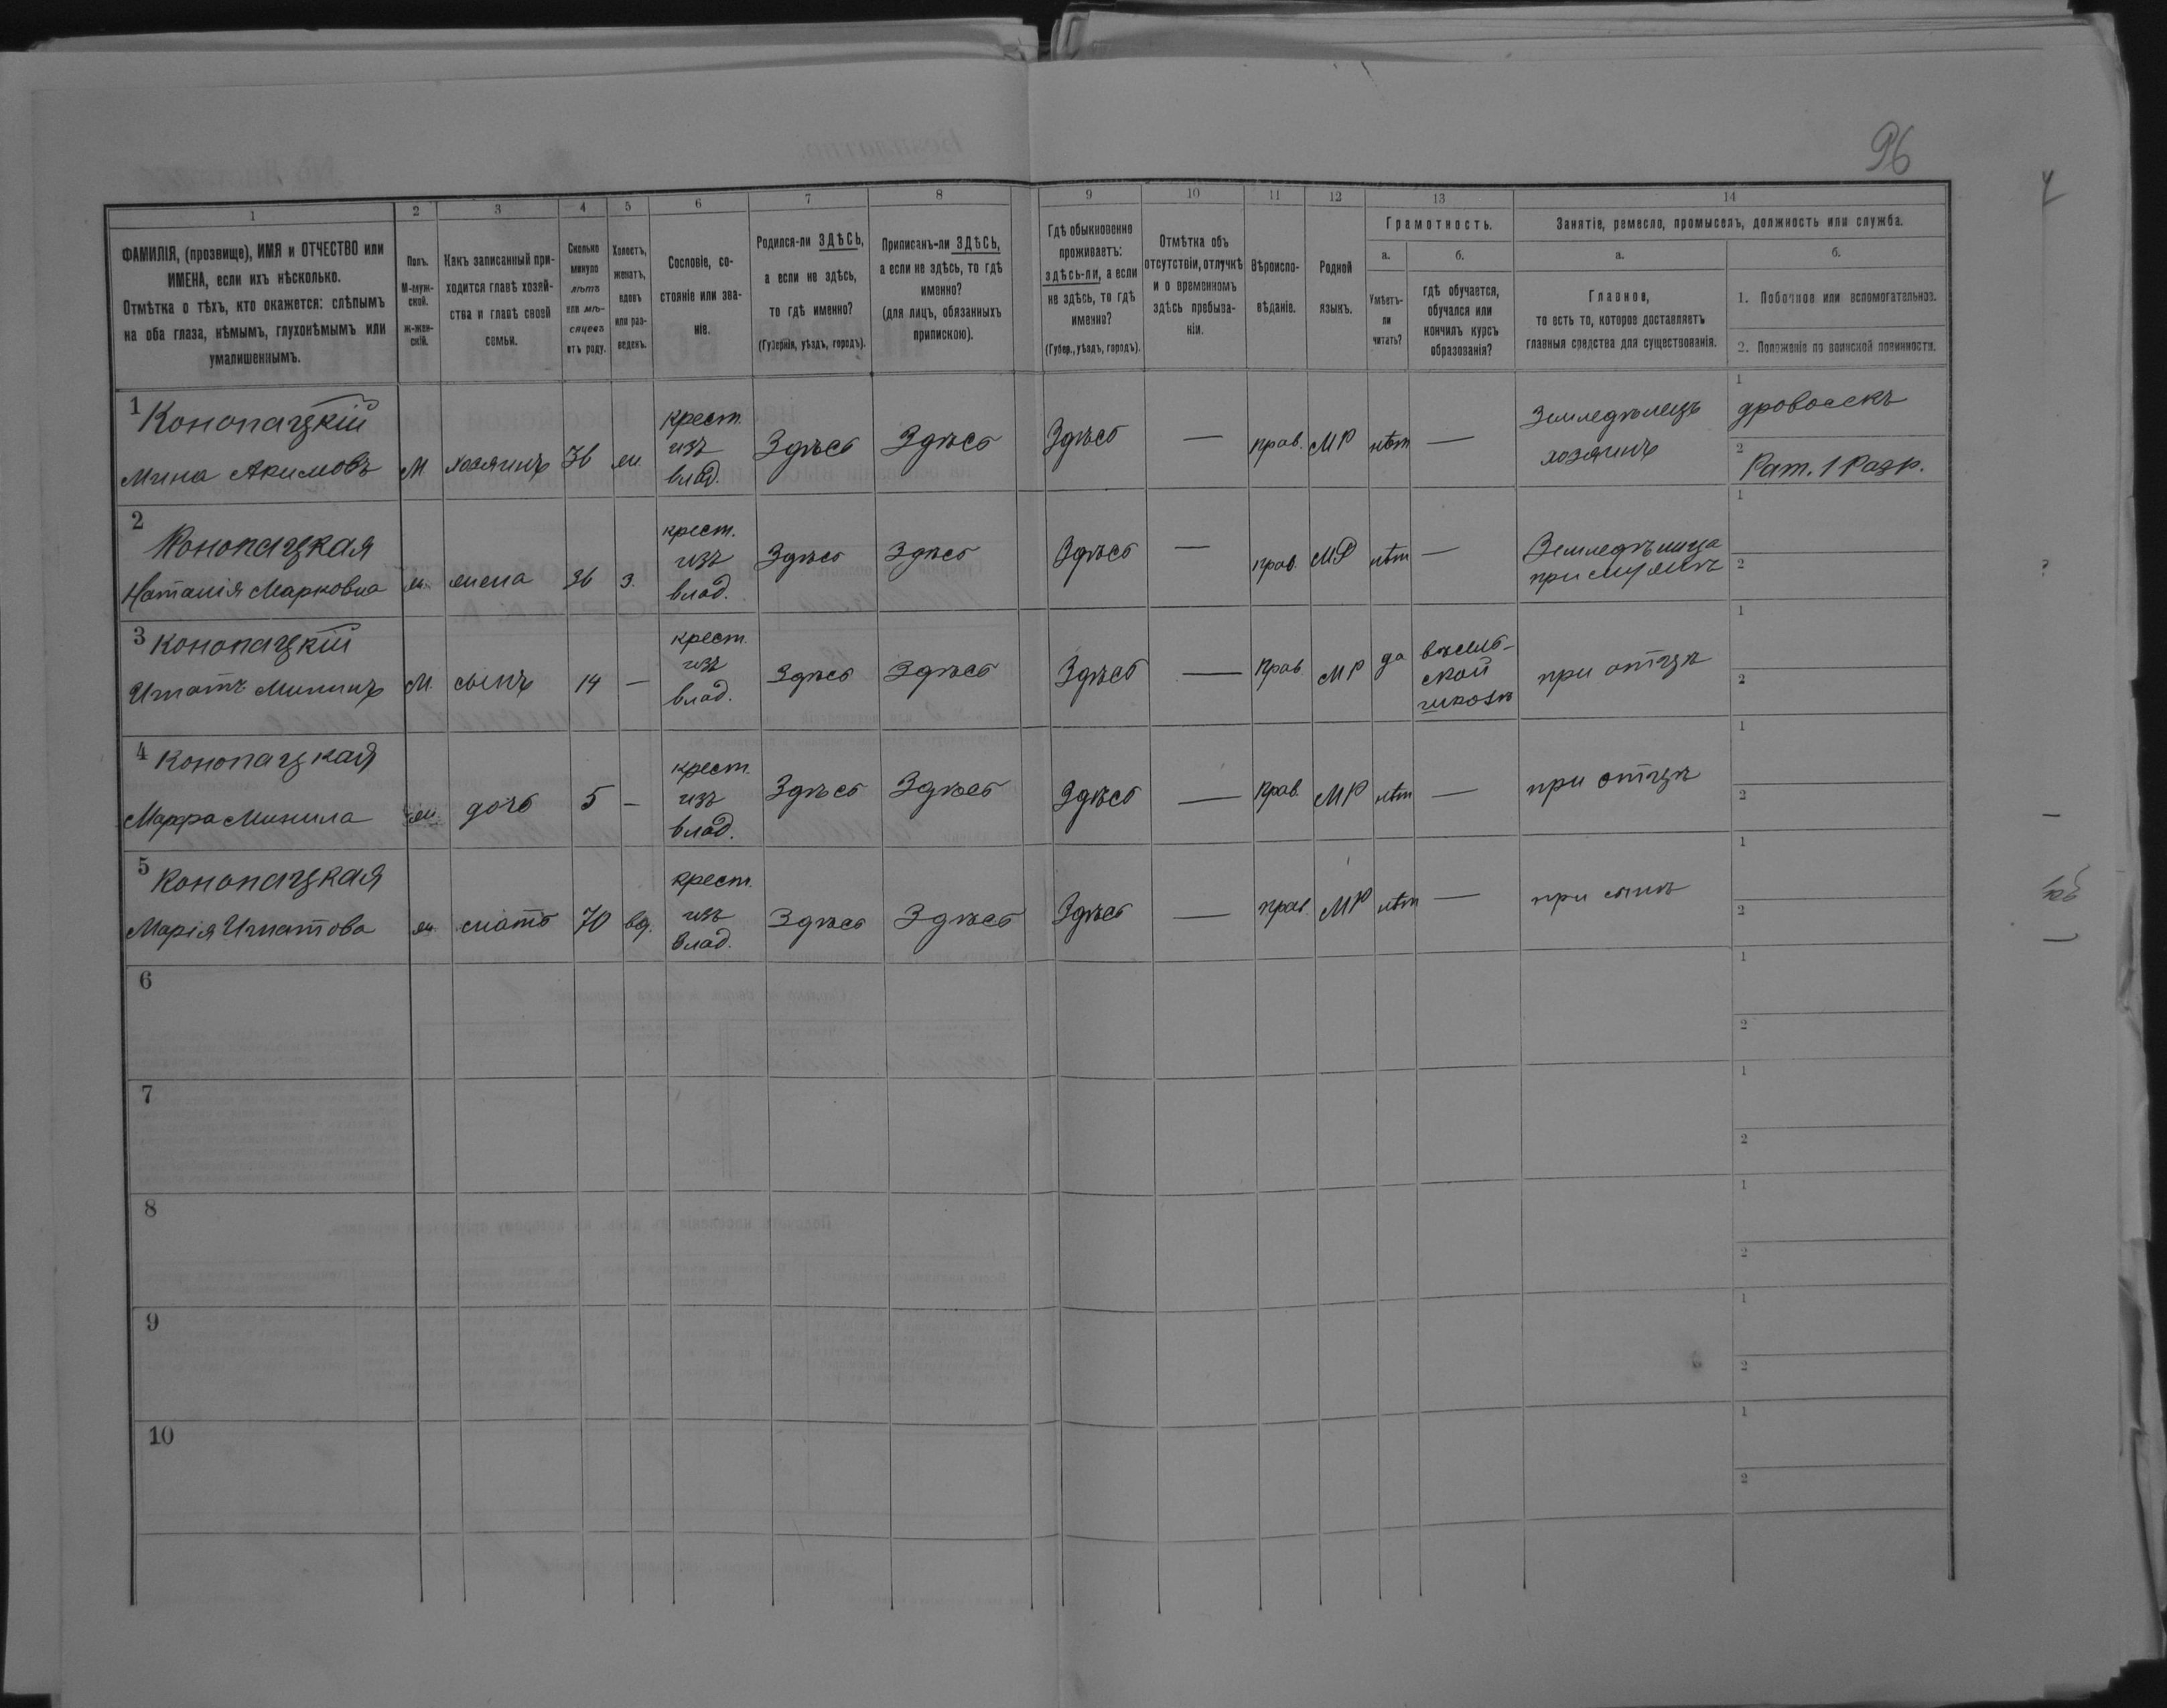 96
1 2 3 4 5 6 7 8 9 10 11 12 13 14
ФАМИЛІЯ, (прозвище), ИМЯ и ОТЧЕСТВО или
ИМЕНА, если ихъ нѣсколько.
Отмѣтка о тѣхъ, кто окажется: слѣпымъ
на оба глаза, нѣмымъ, глухонѣмымъ или
умалишеннымъ.
Полъ.
М-муж-
ской.
ж-жен-
скій.
Какъ записанный при-
ходится главѣ хозяй-
ства и главѣ своей
семьи.
Сколько
минуло
лѣтъ
или мѣ-
сяцевъ
отъ роду.
Холостъ,
женатъ,
вдовъ
или раз-
веденъ.
Сословіе, со-
стояніе или зва-
ніе.
Родился-ли ЗДѢСЬ,
а если не здѣсь,
то гдѣ именно?
(Губернія, уѣздъ, городъ).
Приписанъ-ли ЗДѢСЬ,
а если не здѣсь, то гдѣ
именно?
(для лицъ, обязанныхъ
припискою).
Гдѣ обыкновенно
проживаетъ:
здѣсь-ли, а если
не здѣсь, то гдѣ
именно?
(Губер., уѣздъ, городъ).
Отмѣтка объ
отсутствіи, отлучкѣ
и о временномъ
здѣсь пребыва-
ніи.
Вѣроиспо-
вѣданіе.
Родной
языкъ.
Грамотность.
а.
Умѣетъ-
ли
читать?
б.
гдѣ обучается,
обучался или
кончилъ курсъ
образованія?
Занятіе, ремесло, промыселъ, должность или служба.
а.
Главное,
то есть то, которое доставляетъ
главныя средства для существованія.
б.
1. Побочное или вспомогательное.
2. Положеніе по воинской повинности.
1 Конопацкій
Мина Акимовъ
М
хозяинъ
36
ж.
крест.
изъ
влад.
Здѣсь
Здѣсь
Здѣсь
—
прав.
МР
нѣт
—
Земледѣлецъ
хозяинъ
1
дровосекъ
2
Рат. 1 Разр.
2
Конопацкая
Наталія Марковна
ж.
жена
36
з.
крест.
изъ
влад.
Здѣсь
Здѣсь
Здѣсь
—
прав.
МР
нѣт
—
Земледѣлица
при мужѣ
1
2
3 Конопацкій
Игнатъ Мининъ
М.
сынъ
14
—
крест.
изъ
влад.
Здѣсь
Здѣсь
Здѣсь
—
прав.
МР
да
въ сель-
ской
школѣ
при отцѣ
1
2
4 Конопацкая
Марфа Минина
ж.
дочь
5
—
крест.
изъ
влад.
Здѣсь
Здѣсь
Здѣсь
—
прав.
МР
нѣт
—
при отцѣ
1
2
5 Конопацкая
Марія Игнатова
ж.
мать
70
вд.
крест.
изъ
влад.
Здѣсь
Здѣсь
Здѣсь
—
прав.
МР
нѣт
—
при сынѣ
1
2
6
1
2
7
1
2
8
1
2
9
1
2
10
1
2